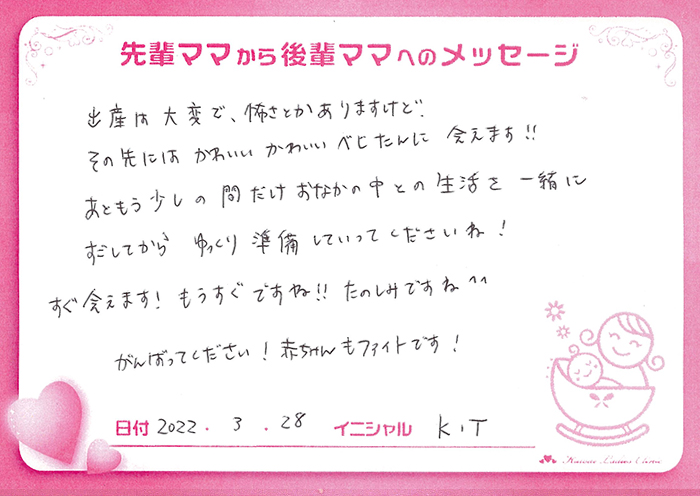 先輩ママから後輩ママへのメッセージ
出産は大変で、怖さとかありますけど、
その先には かわいい かわいい べビたんに 会えます!!
あともう少しの間だけおなかの中との生活を一緒に
すごしてから ゆっくり 準備していってくださいね!
すぐ会えます! もうすぐですね!! たのしみですね^^
がんばってください! 赤ちゃんもファイトです!
日付 2022. 3. 28 イニシャル K.T
Ladies Clinic